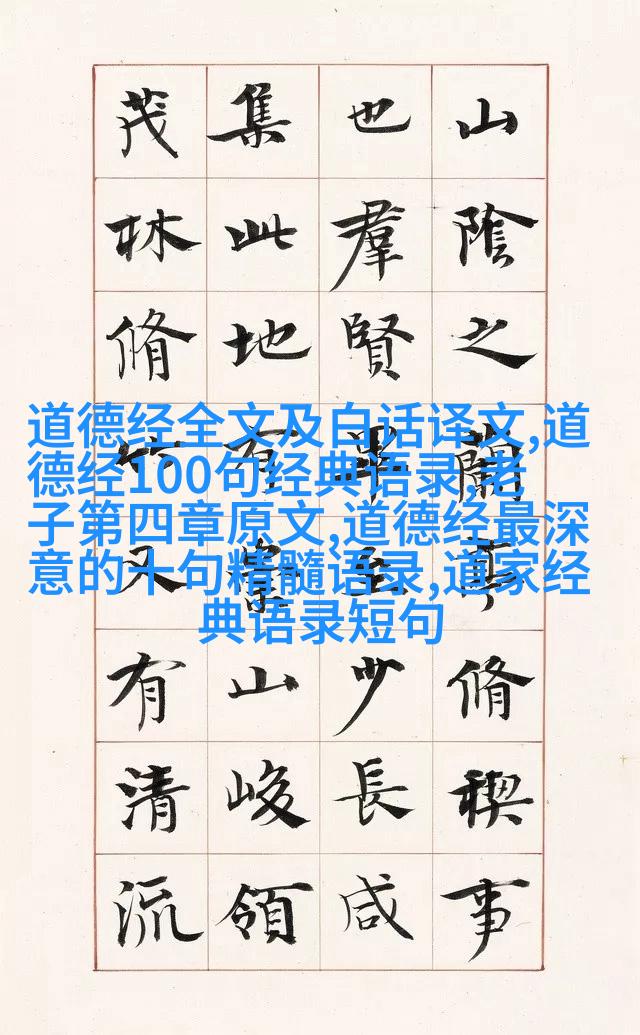 山陰之蘭亭脩稧事
也羣賢畢至少長咸
集此地有崇山峻領
茂林脩竹又有清流
道德经全文及白话译文,道
德经100句经典语录,老
子第四章原文,道德经最深
意的十句精髓语录,道家经
典语录短句